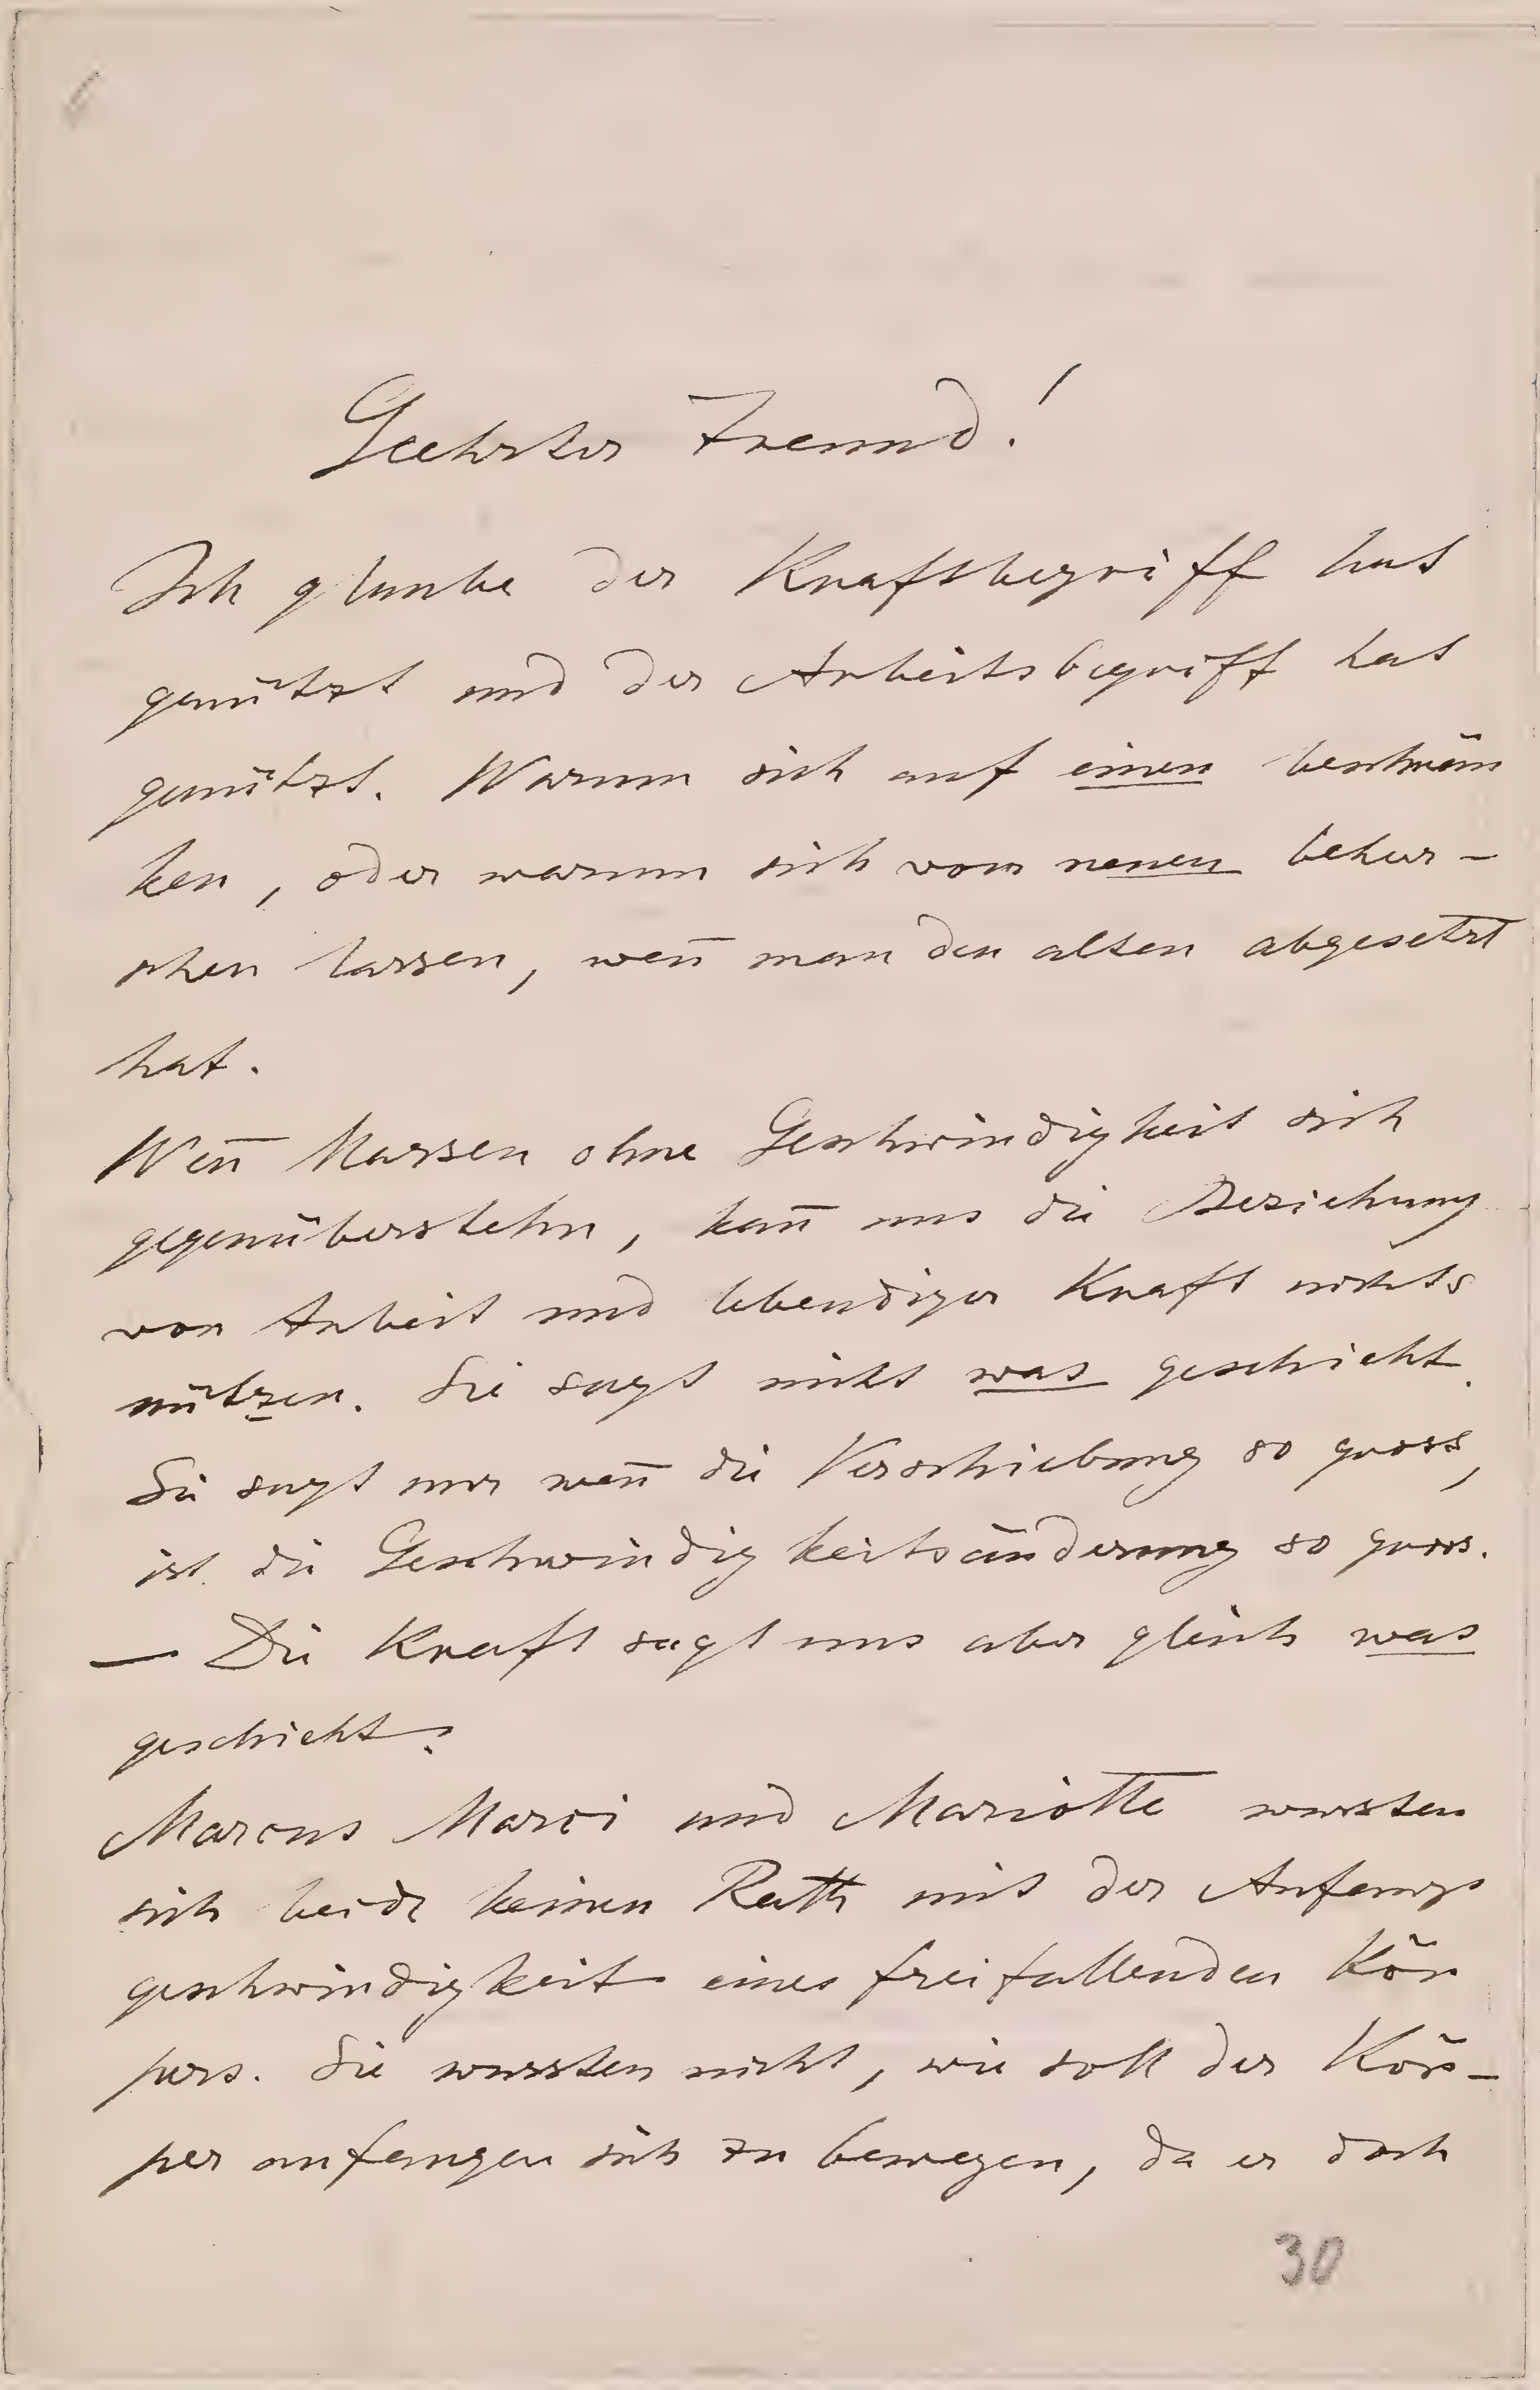 Geehrter Freund!
Ich glaube der Kraftbegriff hat
genützt und der Arbeitsbegriff hat
genützt. Warum sich auf einen beschrän
ken, oder warum sich vom neuen beherr-
schen lassen, wen̄ man den alten abgesetzt
hat.
Wen̄ Massen ohne Geschwindigkeit sich
gegenüberstehn, kan̄ uns die Beziehung
von Arbeit und lebendiger Kraft nichts
nützen. Sie sagt nicht was geschieht.
Sie sagt nur wen̄ die Verschiebung so gross,
ist die Geschwindigkeitsänderung so gross.
— Die Kraft sagt uns aber gleich was
geschieht.
Marcus Marci und Mariotte wussten
sich beide keinen Rath mit der Anfangs
geschwindigkeit eines freifallenden Kör
pers. Sie wussten nicht, wie soll der Kör-
per anfangen sich zu bewegen, da er doch
30